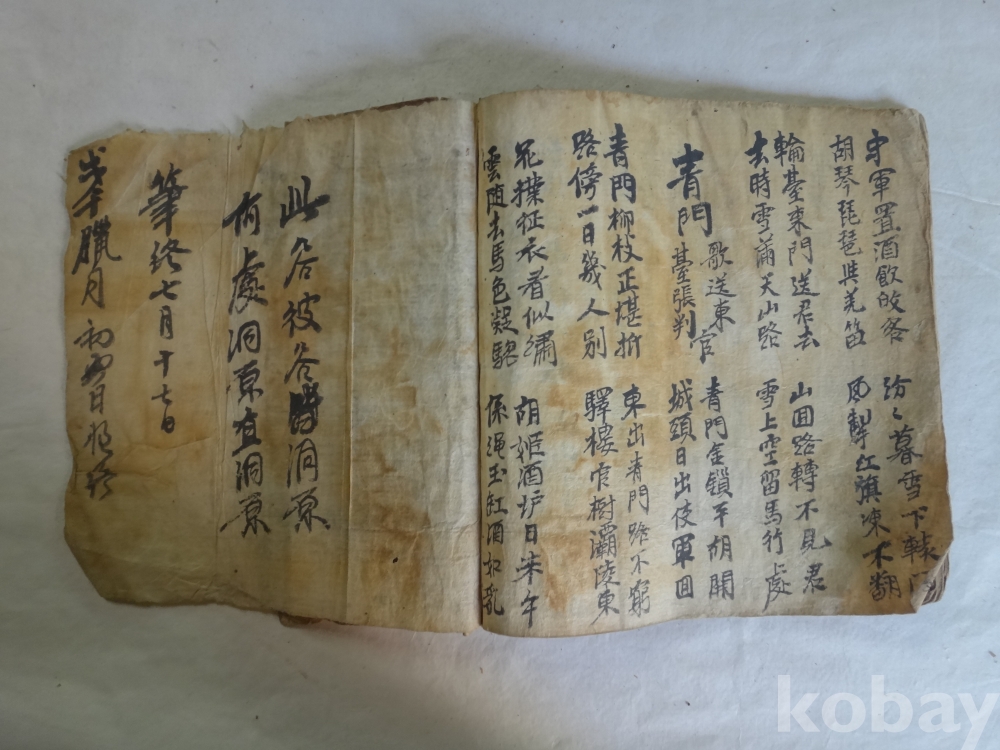 守軍置酒飲皈客
胡琴琵琶與羌笛
紛々暮雪下轅門
風掣紅旗凍不翻
輪臺東門送君去
去時雪滿天山路
山回路轉不見君
雪上空留馬行處
青門歌送東臺張判官
青門金鎖平朝開
城頭日出使軍回
青門柳枝正堪折
路傍一日幾人別
東出青門路不窮
驛樓官樹灞陵東
花撲征衣看似繡
雲随去馬色疑驄
胡姬酒炉日未午
係繩玉缸酒如乳
此谷彼谷洞原
何處洞原宜洞原
筆終七月十七日
戊午臘月初日
kobay